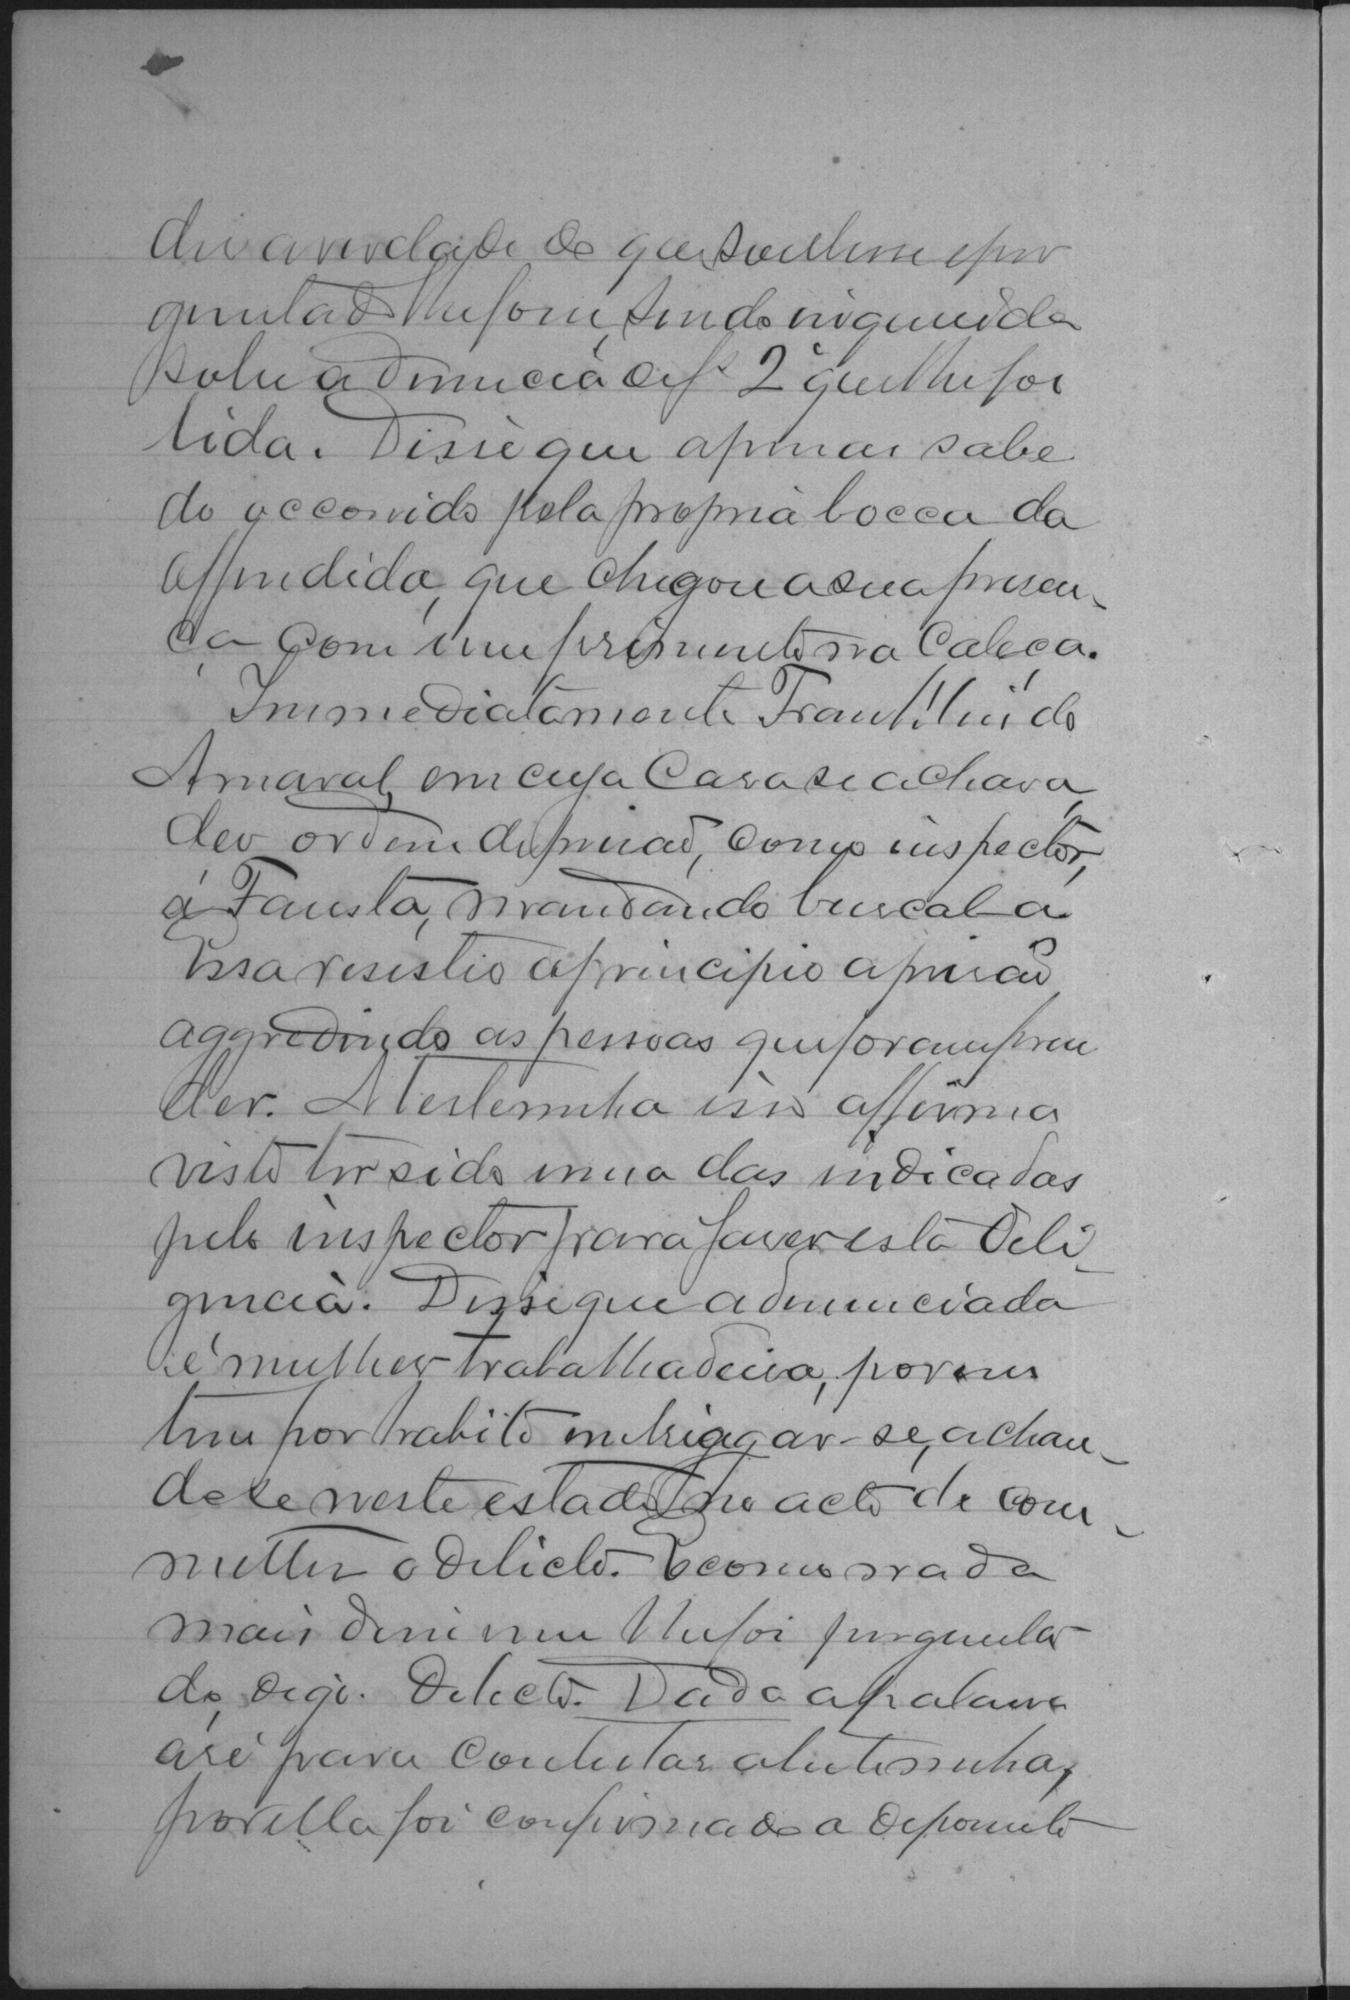 dir a verdade do que soubesse e per
guntado lhe fosse, sendo inquirida
sobre a denuncia de fs 2 que lhe foi
lida. Disse que apenas sabe
do occorrido pela propria bocca da
offendida, que chegou a sua presen-
ça com um ferimento na cabeça.
Immediatamente Franklin do
Amaral, em cuja casa se achava,
deo ordem de prisaõ, como inspector,
á Fausta, mandando buscal-a
Essa resistio a principio a prisaõ
aggredindo as pessoas que foram pren
der. A testemunha isso affirma
visto ter sido uma das indicadas
pelo inspector para fazer esta deli
gencia. Disse que a denunciada
é mulher trabalhadeira, porem
tem por habito embriagar-se, achan-
do se neste estado no acto de com-
metter o delicto. E como nada
mais disse nem lhe foi pergunta
do, digo. Delicto. Dada a palavra
á ré para contestar a testemunha,
por ella foi confirmado o depoimento